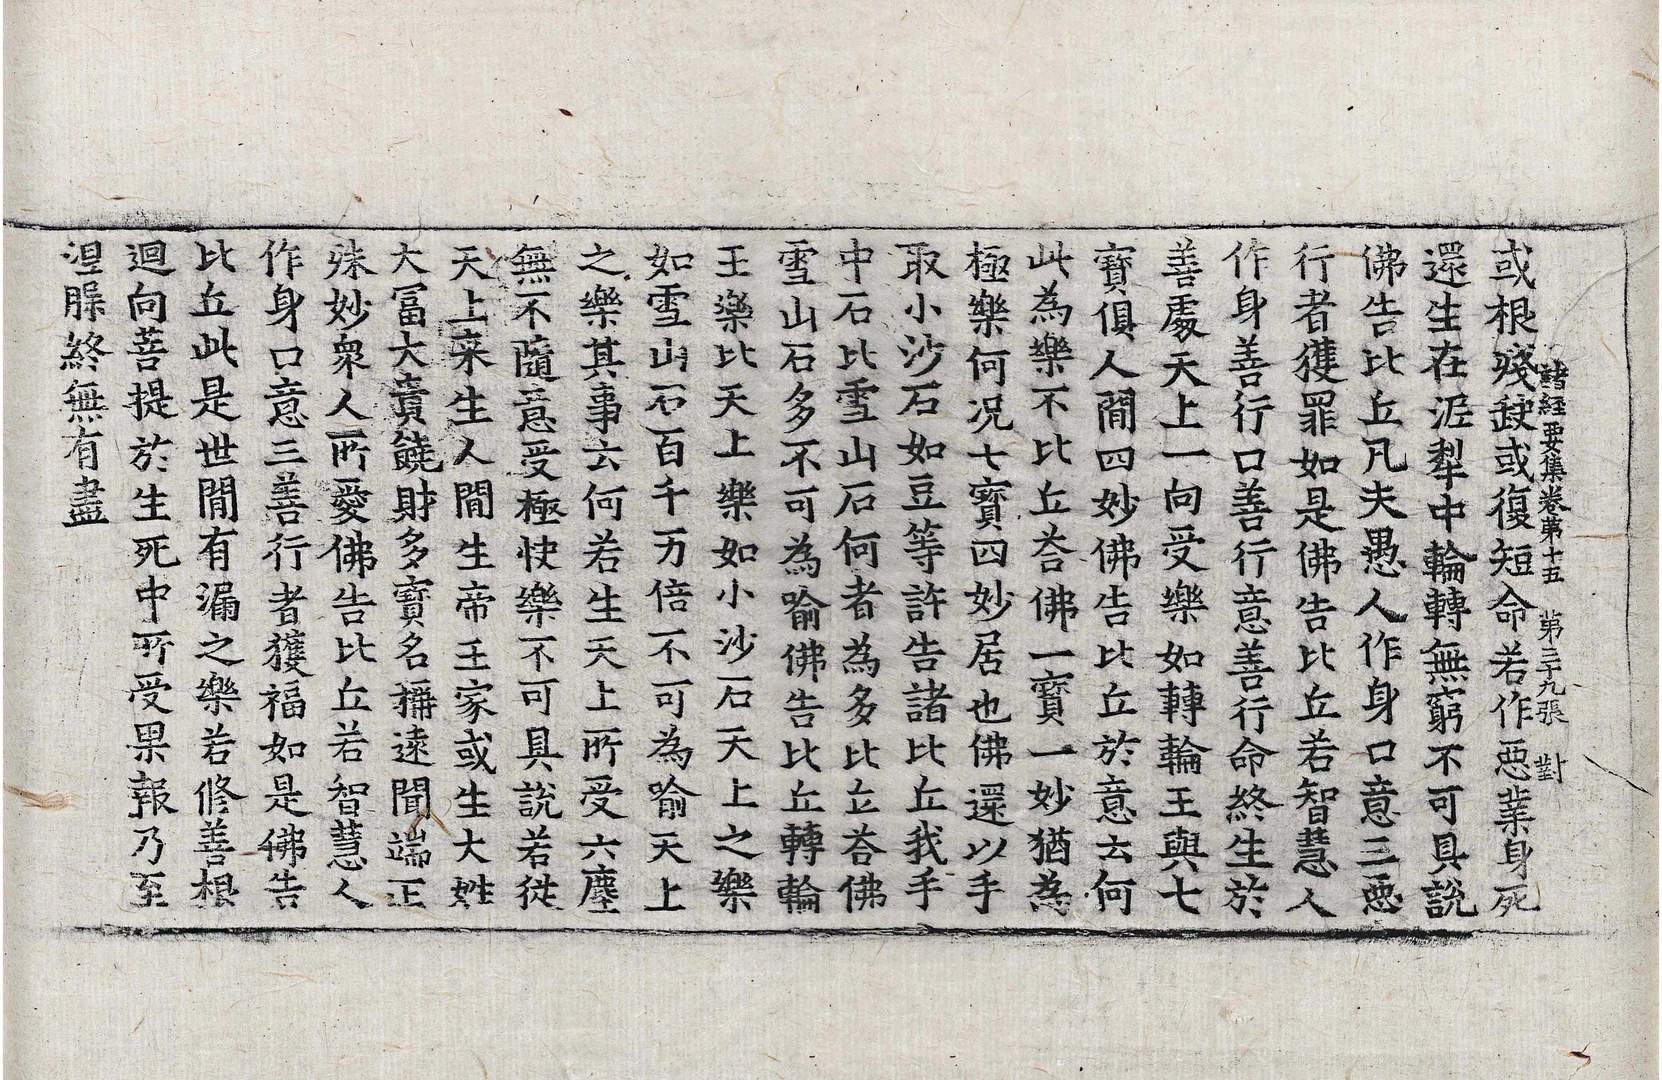 諸經要集卷苐十五　苐三十九張　對
或根殘缺或復短命若作惡業身死
還生在泥犁中輪轉無窮不可具說
佛告比丘凡夫愚人作身口意三惡
行者獲罪如是佛告比丘若智慧人
作身善行口善行意善行命終生於
善處天上一向受樂如轉輪王與七
寶俱人間四妙佛告比丘於意云何
此為樂不比丘荅佛一寶一妙猶為
極樂何况七寶四妙居也佛還以手
取小沙石如豆等許告諸比丘我手
中石比雪山石何者為多比丘荅佛
雪山石多不可為喻佛告比丘轉輪
王樂比天上樂如小沙石天上之樂
如雪山石百千万倍不可為喻天上
之樂其事云何若生天上所受六塵
無不隨意受極快樂不可具說若從
天上來生人間生帝王家或生大姓
大冨大貴饒財多寶名稱遠聞端正
殊妙衆人所愛佛告比丘若智慧人
作身口意三善行者獲福如是佛告
比丘此是世間有漏之樂若修善根
迴向菩提於生死中所受果報乃至
涅槃終無有盡